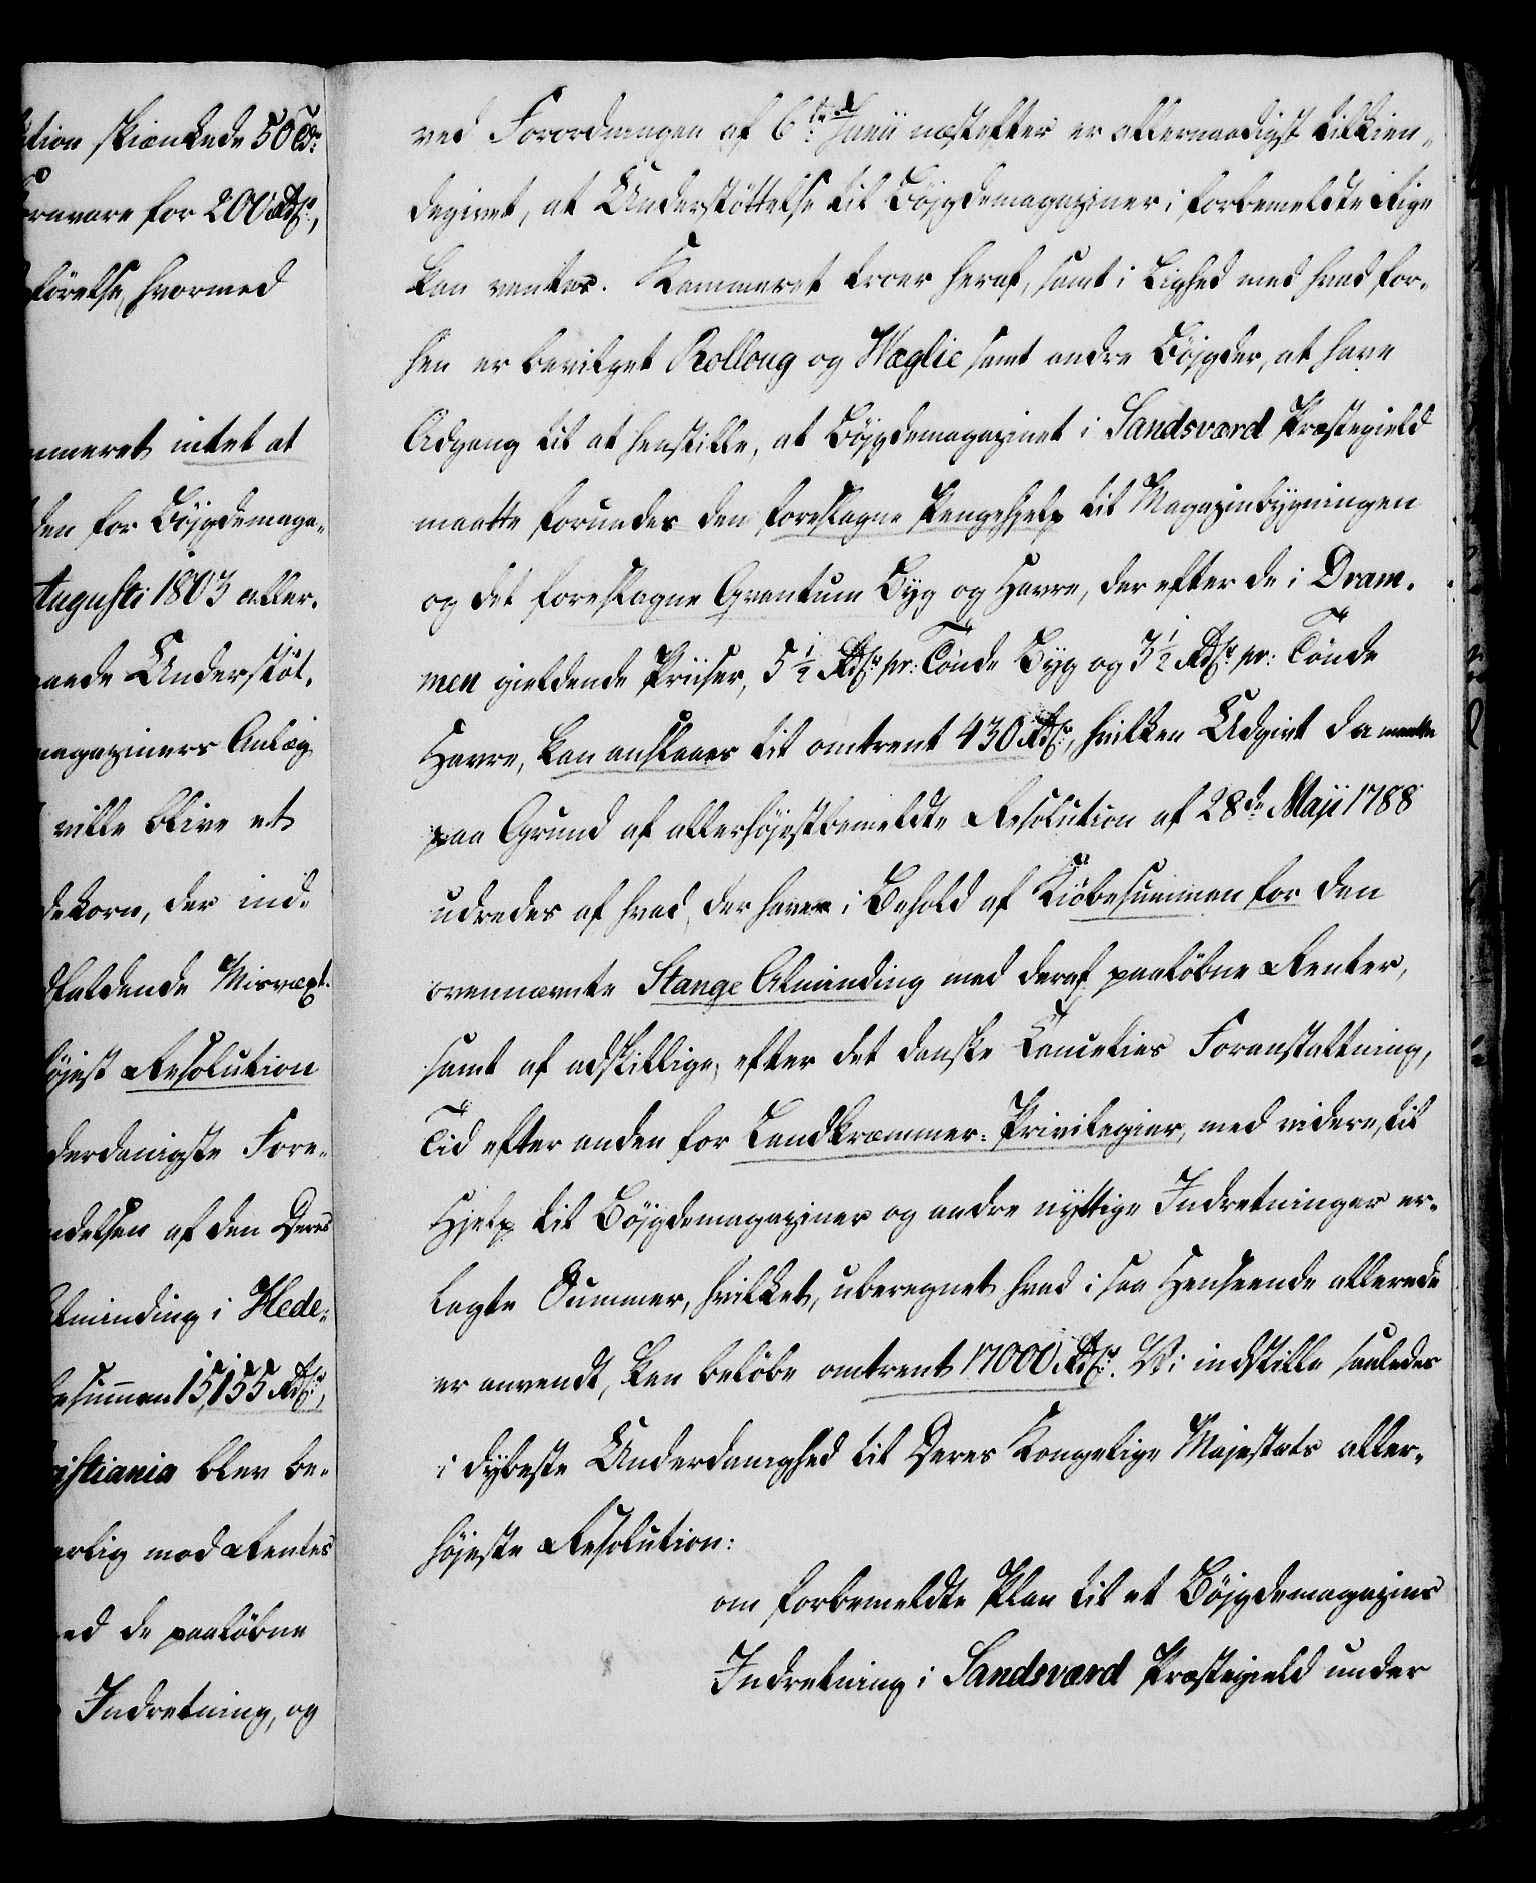 ution skiænkede 50 Tdr
ornvare for 200 Rdlr,
førelse, hvormed
mmeret intet at
den for Böjgdemaga-
Augusti 1803 aller-
nede Understöt-
magaziners Anlæg
ville blive et
dekorn, der ind-
dfaldende Misvæxt
öjest Resolution
derdanigste Fore-
ndelsen af den Deres
Alminding i Hede-
besummen 15,155 Rdlr,
ristiania blev be-
erlig mod Rentes
ed de paalöbne
Indretning, og
ved Forordningen af 6te Junii næstefter er allernaadigst tilkien-
degivet, at Understöttelse til Böjgdemagaziner i forbemeldte Rige
kan ventes. Kammeret troer heraf, samt i Lighed med hvad for-
hen er bevilget Rollong og Wæglie samt andre Böjgder, at have
Adgang til at henstille, at Böjgdemagazinet i Sandsværd Præstegield
maatte forundes den foreslagne Pengehielp til Magazinbygningen
og det foreslagne Qvantum Byg og Havre, der efter de i Dram-
men gieldende Priiser, 5½ Rdlr pr: Tönde Byg og 3½ Rdlr pr: Tönde
Havre, kan anslaaes til omtrent 430 Rdlr, hvilken Udgivt da maatte
paa Grund af allerhöjestbemeldte Resolution af 28de Maji 1788
udredes af hvad der haves i Behold af Kiöbesummen for den
ovennævnte Stange Alminding med deraf paalöbne Renter,
samt af adskillige, efter det danske Cancelies Foranstaltning,
Tid efter anden for Landkræmmer-Privilegier, med videre, til
Hjelp til Böjgdemagaziner og andre nyttige Indretninger er-
lagte Summer, hvilket, uberegnet hvad i saa Henseende allerede
er anvendt, kan belöbe omtrent 17000 Rdlr. Vi indstille saaledes
i dybeste Underdanighed til Deres Kongelige Majestæts aller-
höjeste Resolution:
om forbemeldte Plan til et Böjgdemagazins
Indretning i Sandsværd Præstegield under